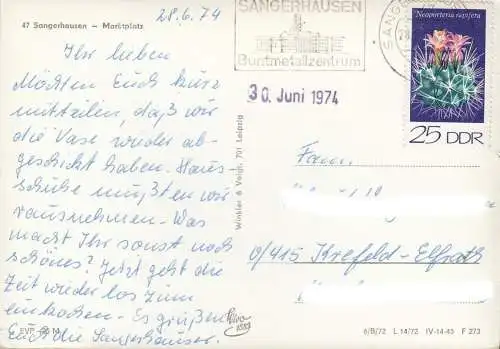 47 Sangerhausen – Marktplatz
28.6.74
Ihr lieben
Möchten Euch kurz
mitteilen, daß wir
die Vase wieder ab-
geschickt haben. Haus-
schuhe mußten wir
rausnehmen. Was
macht Ihr sonst noch
schönes? Jetzt geht die
Zeit wieder los zum
einkochen. Es grüßen
Euch die Sangerhäuser.
EVP
Winkler & Voigt, 701 Leipzig
SANGERHAUSEN
Buntmetallzentrum
30. Juni 1974
SANGER
Neoporteria rapifera
25 DDR
Fam.
0/415 Krefeld-Elfrath
6/B/72 L 14/72 IV-14-45 F 273